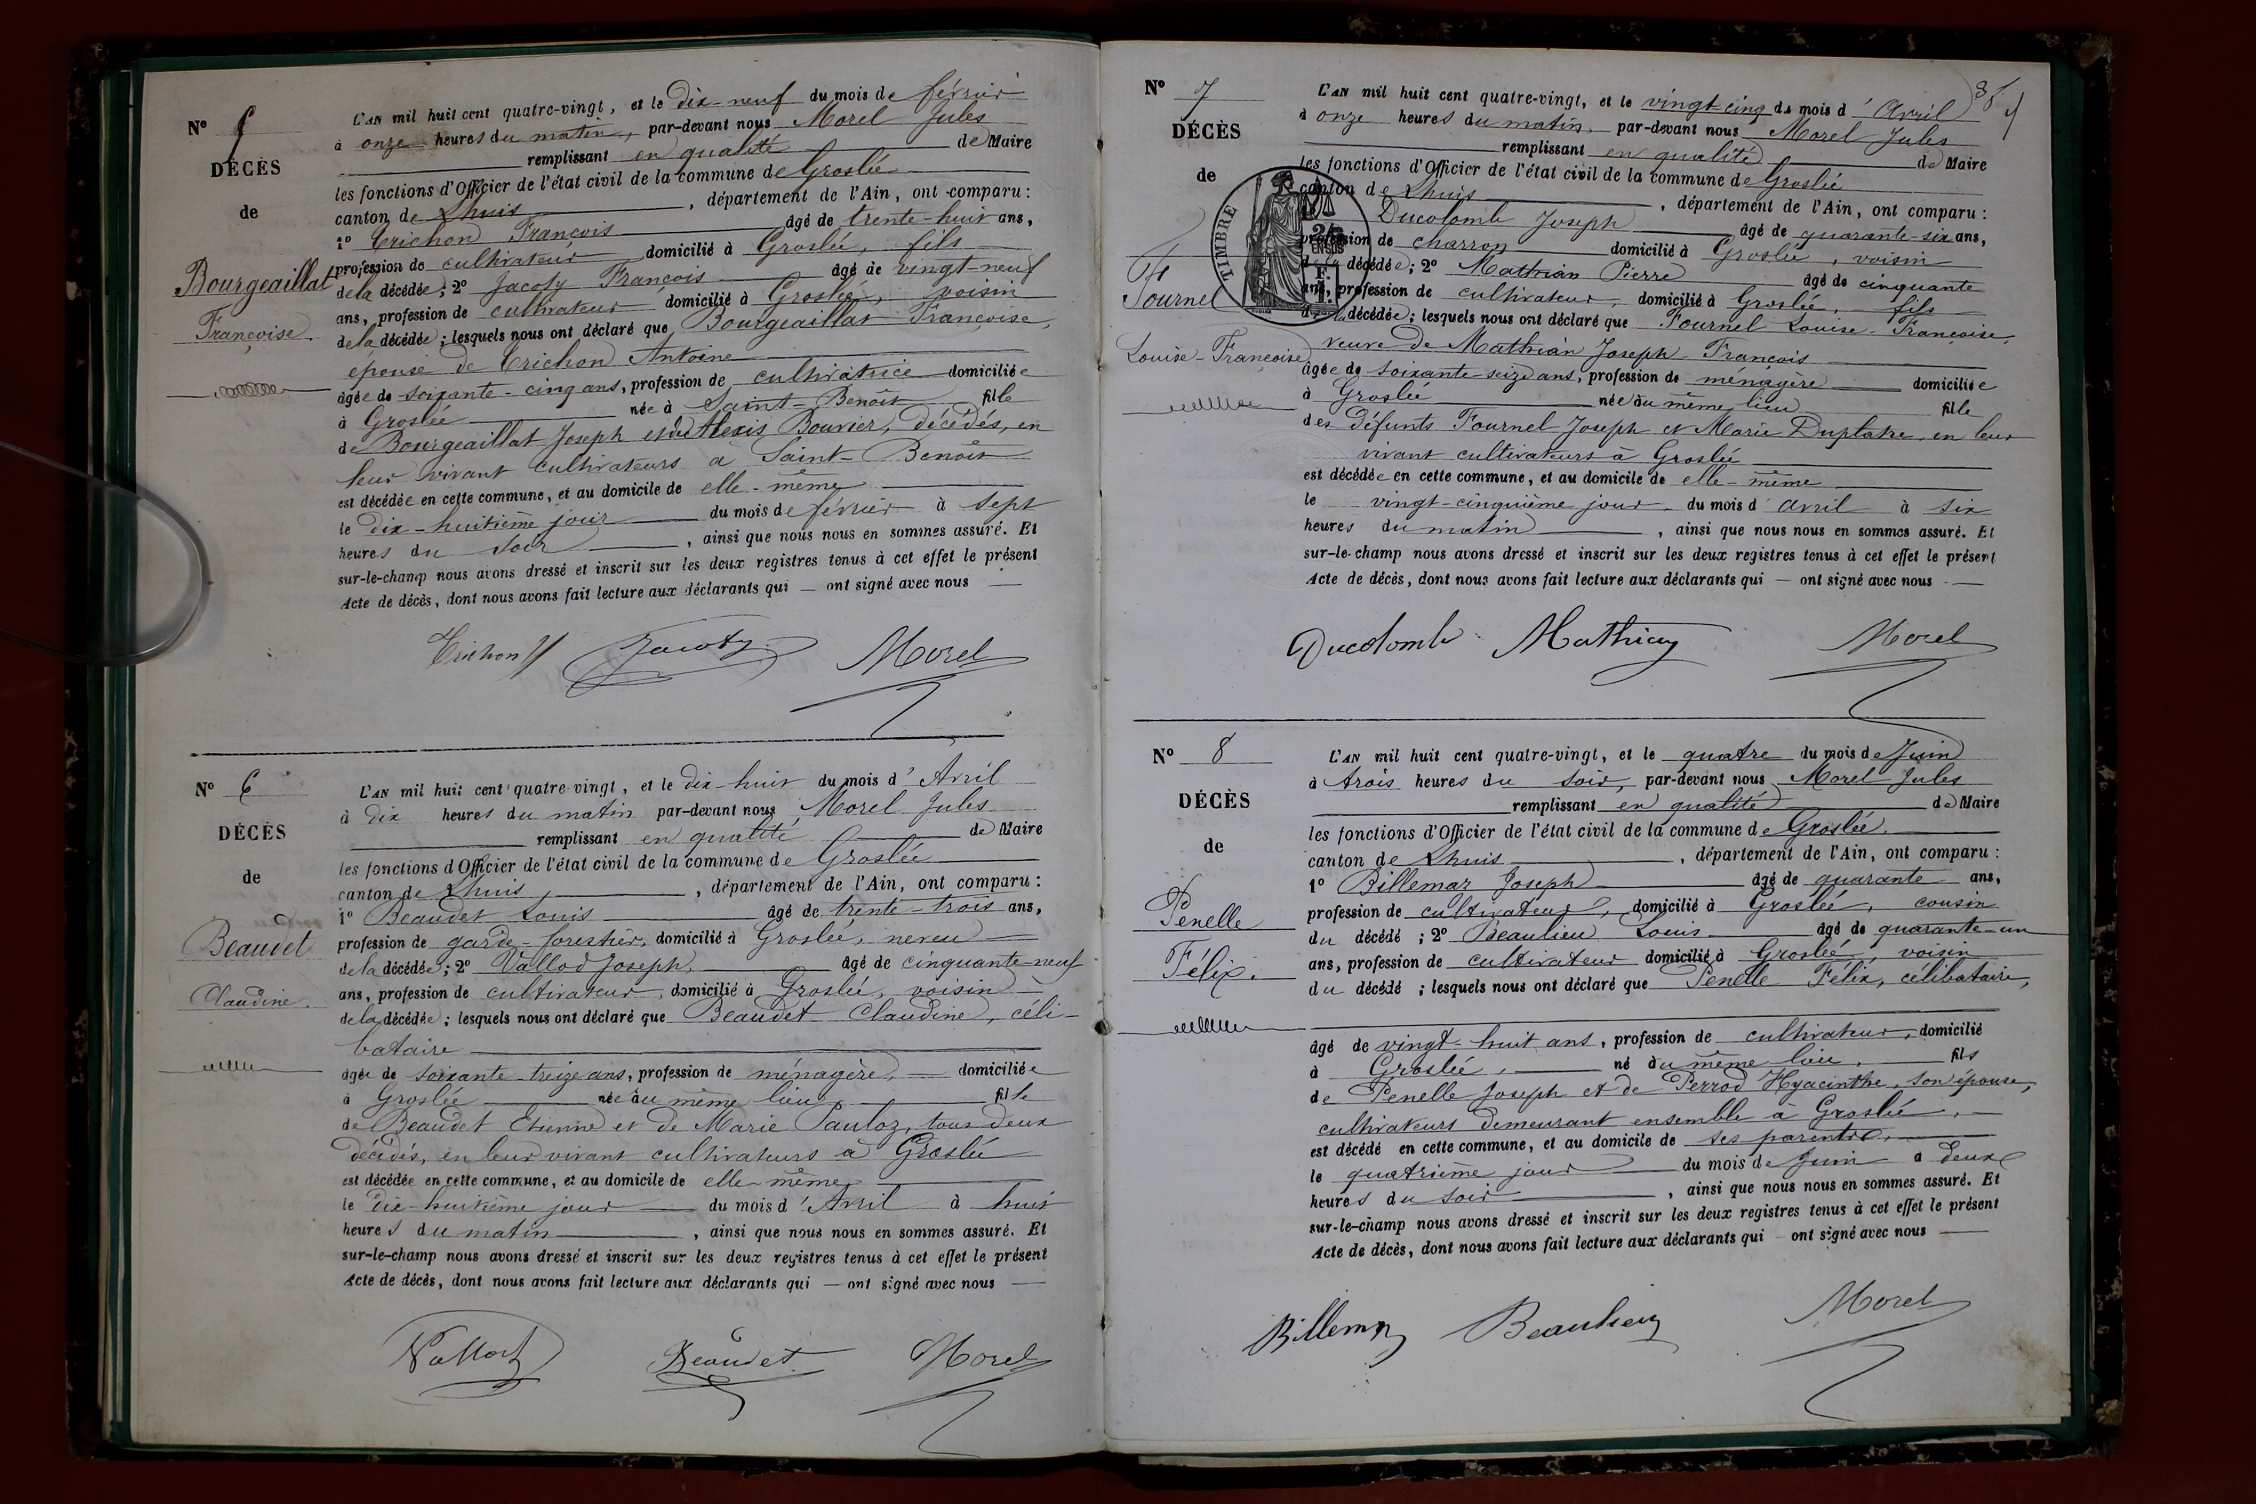 Nº 5
DÉCÈS
de
Bourgeaillat
Françoise.
L'AN mil huit cent quatre-vingt, et le dix-neuf du mois de février
à onze heures du matin, par-devant nous Morel Jules
remplissant en qualité de Maire
les fonctions d'Officier de l'état civil de la commune de Groslée
canton de Lhuis, département de l'Ain, ont comparu :
1º Crichon François âgé de trente-huit ans,
profession de cultivateur domicilié à Groslée, fils
de la décédée ; 2º Jacoty François âgé de vingt-neuf
ans, profession de cultivateur domicilié à Groslée, voisin
de la décédée ; lesquels nous ont déclaré que Bourgeaillat Françoise,
épouse de Crichon Antoine
âgée de soixante-cinq ans, profession de cultivatrice domiciliée
à Groslée née à Saint-Benoît fille
de Bourgeaillat Joseph et de Alexis Bouvier, décédés, en
leur vivant cultivateurs à Saint-Benoît
est décédée en cette commune, et au domicile de elle-même
le dix-huitième jour du mois de février à sept
heures du soir, ainsi que nous nous en sommes assuré. Et
sur-le-champ nous avons dressé et inscrit sur les deux registres tenus à cet effet le présent
Acte de décès, dont nous avons fait lecture aux déclarants qui — ont signé avec nous —
Crichon Jacoty Morel
Nº 6
DÉCÈS
de
Beaudet
Claudine.
L'AN mil huit cent quatre-vingt, et le dix-huit du mois d'Avril
à dix heures du matin par-devant nous Morel Jules
remplissant en qualité de Maire
les fonctions d'Officier de l'état civil de la commune de Groslée
canton de Lhuis, département de l'Ain, ont comparu :
1º Beaudet Louis âgé de trente-trois ans,
profession de garde-forestier, domicilié à Groslée, neveu
de la décédée ; 2º Vallod Joseph, âgé de cinquante-neuf
ans, profession de cultivateur, domicilié à Groslée, voisin
de la décédée ; lesquels nous ont déclaré que Beaudet Claudine, céli-
bataire
âgée de soixante treize ans, profession de ménagère, domiciliée
à Groslée née au même lieu, fille
de Beaudet Etienne et de Marie Pauloz, tous deux
décédés, en leur vivant cultivateurs à Groslée
est décédée en cette commune, et au domicile de elle-même
le dix-huitième jour du mois d'Avril à huit
heures du matin, ainsi que nous nous en sommes assuré. Et
sur-le-champ nous avons dressé et inscrit sur les deux registres tenus à cet effet le présent
Acte de décès, dont nous avons fait lecture aux déclarants qui — ont signé avec nous —
Vallod Beaudet Morel
Nº 7
DÉCÈS
de
Fournel
Louise-Françoise
TIMBRE
25
EN SUS
L'AN mil huit cent quatre-vingt, et le vingt-cinq du mois d'Avril
à onze heures du matin, par-devant nous Morel Jules
remplissant en qualité de Maire
les fonctions d'Officier de l'état civil de la commune de Groslée
canton de Lhuis, département de l'Ain, ont comparu :
Ducolomb Joseph âgé de quarante-six ans,
profession de charron domicilié à Groslée, voisin
de la décédée ; 2º Mathian Pierre âgé de cinquante
ans, profession de cultivateur, domicilié à Groslée, fils
de la décédée ; lesquels nous ont déclaré que Fournel Louise-Françoise,
veuve de Mathian Joseph-François
âgée de soixante-seize ans, profession de ménagère domiciliée
à Groslée née au même lieu fille
des défunts Fournel Joseph et Marie Duplatre, en leur
vivant cultivateurs à Groslée
est décédée en cette commune, et au domicile de elle-même
le vingt-cinquième jour du mois d'avril à six
heures du matin, ainsi que nous nous en sommes assuré. Et
sur-le-champ nous avons dressé et inscrit sur les deux registres tenus à cet effet le présent
Acte de décès, dont nous avons fait lecture aux déclarants qui — ont signé avec nous —
Ducolomb Mathian Morel
Nº 8
DÉCÈS
de
Penelle
Félix.
L'AN mil huit cent quatre-vingt, et le quatre du mois de Juin
à trois heures du soir, par-devant nous Morel Jules
remplissant en qualité de Maire
les fonctions d'Officier de l'état civil de la commune de Groslée.
canton de Lhuis, département de l'Ain, ont comparu :
1º Billemaz Joseph âgé de quarante ans,
profession de cultivateur, domicilié à Groslée, cousin
du décédé ; 2º Beaulieu Louis âgé de quarante-un
ans, profession de cultivateur domicilié à Groslée, voisin
du décédé ; lesquels nous ont déclaré que Penelle Félix, célibataire,
âgé de vingt-huit ans, profession de cultivateur, domicilié
à Groslée, né au même lieu, fils
de Penelle Joseph et de Perrod Hyacinthe, son épouse,
cultivateurs demeurant ensemble à Groslée,
est décédé en cette commune, et au domicile de ses parents,
le quatrième jour du mois de Juin à deux
heures du soir, ainsi que nous nous en sommes assuré. Et
sur-le-champ nous avons dressé et inscrit sur les deux registres tenus à cet effet le présent
Acte de décès, dont nous avons fait lecture aux déclarants qui — ont signé avec nous —
Billemaz Beaulieu Morel